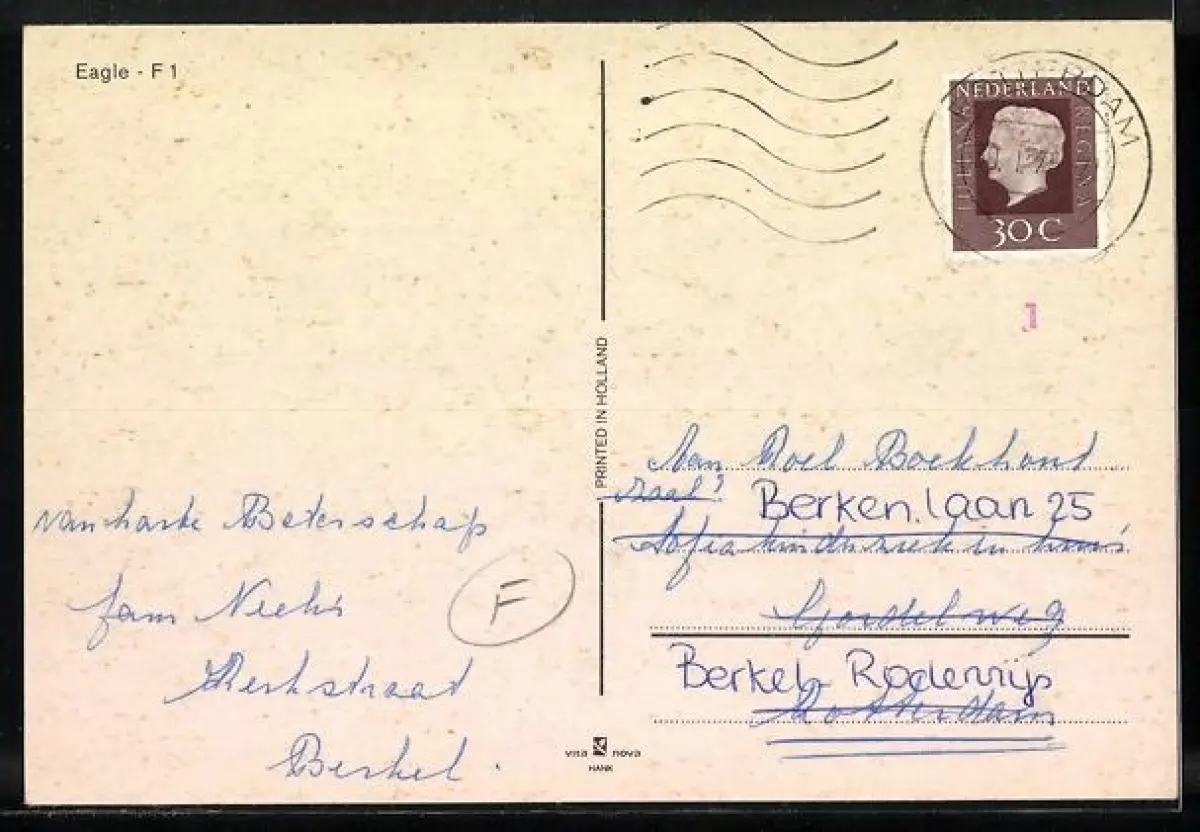 Eagle - F 1
van harte Beterschap
fam
Kerkstraat
Berkel.
F
PRINTED IN HOLLAND
vita nova
HANK
ROTTERDAM
NEDERLAND
JULIANA REGINA
30 C
1
Aan Roel Boekhout
zaal?
Berken.laan 25
Sofia kinderziekenhuis
Gordelweg
Berkel Rodenrijs
Rotterdam